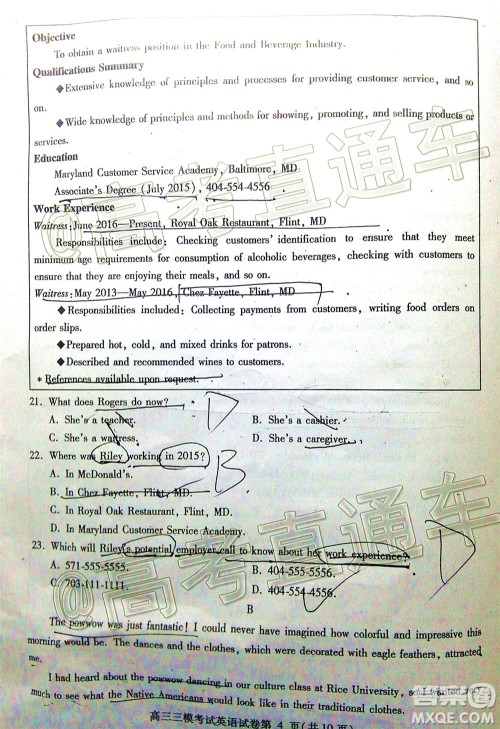 Objective
To obtain a waitress position in the Food and Beverage Industry.
Qualifications Summary
◆Extensive knowledge of principles and processes for providing customer service, and so
on.
◆Wide knowledge of principles and methods for showing, promoting, and selling products or
services.
Education
Maryland Customer Service Academy, Baltimore, MD
Associate's Degree (July 2015), 404-554-4556
Work Experience
Waitress: June 2016—Present, Royal Oak Restaurant, Flint, MD
Responsibilities include: Checking customers' identification to ensure that they meet
minimum age requirements for consumption of alcoholic beverages, checking with customers to
ensure that they are enjoying their meals, and so on.
Waitress: May 2013—May 2016, Chez Fayette, Flint, MD
◆Responsibilities included: Collecting payments from customers, writing food orders on
order slips.
◆Prepared hot, cold, and mixed drinks for patrons.
◆Described and recommended wines to customers.
* References available upon request.
21. What does Rogers do now? D
A. She's a teacher. B. She's a cashier.
C. She's a waitress. D. She's a caregiver.
22. Where was Riley working in 2015? B
A. In McDonald's.
B. In Chez Fayette, Flint, MD.
C. In Royal Oak Restaurant, Flint, MD.
D. In Maryland Customer Service Academy.
23. Which will Riley's potential employer call to know about her work experience? D
A. 571-555-5555. B. 404-555-5556.
C. 703-111-1111. D. 404-554-4556.
B
The powwow was just fantastic! I could never have imagined how colorful and impressive this
morning would be. The dances and the clothes, which were decorated with eagle feathers, attracted
me.
I had heard about the powwow dancing in our culture class at Rice University, so I wanted
much to see what the Native Americans would look like in their traditional clothes.
高三三模考试英语试卷第 4 页(共 10 页)
@高考直通车
@高考直通车
答案圈
MXQE.COM